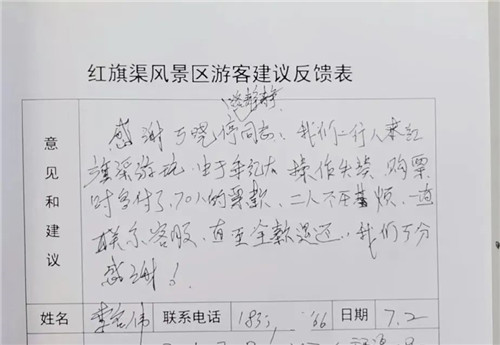 红旗渠风景区游客建议反馈表
意见和建议
感谢丁晓停同志：我们一行人来红
旗渠游玩，由于年纪大 操作失误 购票
时多付了70人的票款，二人不厌其烦，一直
联系客服，直至全款退还，我们万分
感谢！
姓名 李宏伟 联系电话 183 66 日期 7.2